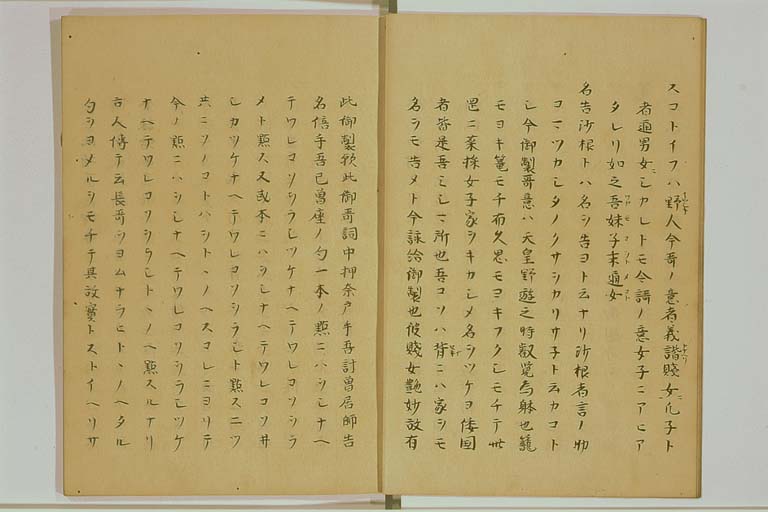 スコトイフハ野人今哥ノ意者義諧賤女ヲ凡子ト
者通男女ニシカレトモ今謌ノ意女子ニアヒア
タレリ如之吾妹子末通女
名告沙根トハ名シ告ヨト云ナリ沙根者言ノ物
コマツカシタノクサシカリサ子トタカコト
シ今御製哥意ハ天皇野遊之時叡覧為躰也籠
モヨキ篭モチ有久思モヨキフクシモチテ此
邑ニ菜採女子家シキカシメ名シツケヨ倭国
者皆是吾シシマ所也吾コソハ背ニハ家シモ
名シモ告メト今詠給御製也彼賤女艶妙故有
此御製欤此御哥詞中押奈戸手吾討曽居師告
名倍手吾已曽座ノ句一本ノ點ニハシナヘ
テワレコソシラシツケナヘテワレコソシラ
メト點ス又或本ニハシナヘテワレコソヰ
シカツケナヘテワレコソシラシト點スニツ
共ニソノコトハシトヽノヘスコレニヨリテ
今ノ點ニハシナヘテワレコソシラシツケ
ナヘテワレコソシラシトヽノヘ點スルナリ
古人傳テ云長哥シヨムナラヒトヽノヘタル
句シヨメルシモチテ其故實トストイヘリサ